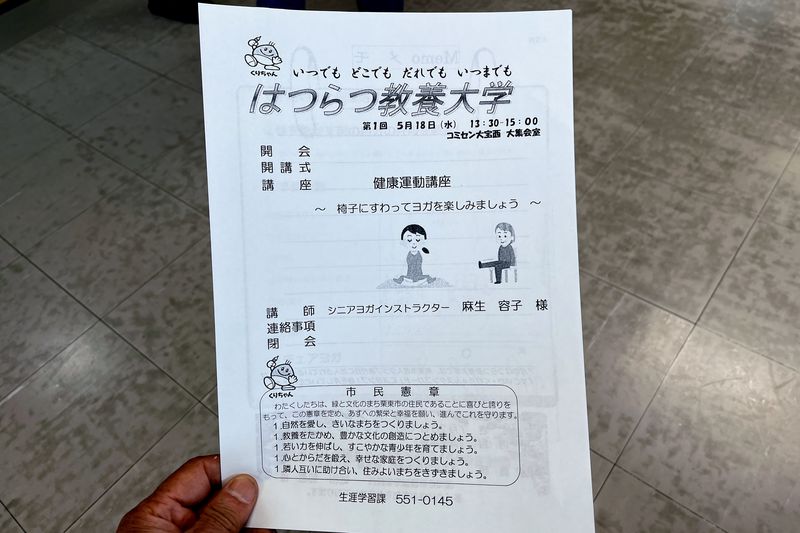 くりちゃん
いつでも どこでも だれでも いつまでも
はつらつ教養大学
第1回 5月18日(水) 13:30-15:00
コミセン大宝西 大集会室
開会
開講式
講座 健康運動講座
～ 椅子にすわってヨガを楽しみましょう ～
講師 シニアヨガインストラクター 麻生 容子 様
連絡事項
閉会
くりちゃん
市民憲章
わたくしたちは、緑と文化のまち栗東市の住民であることに喜びと誇りを
もって、この憲章を定め、あすへの繁栄と幸福を願い、進んでこれを守ります。
1.自然を愛し、きれいなまちをつくりましょう。
1.教養をたかめ、豊かな文化の創造につとめましょう。
1.若い力を伸ばし、すこやかな青少年を育てましょう。
1.心とからだを鍛え、幸せな家庭をつくりましょう。
1.隣人互いに助け合い、住みよいまちをきずきましょう。
生涯学習課 551-0145
Memo メモ